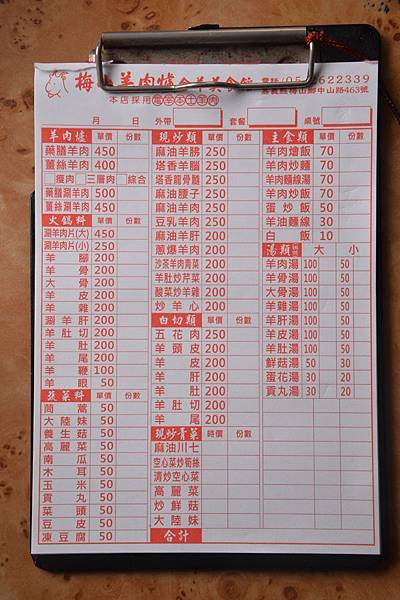 梅山羊肉爐全羊美食館
電話(05)2622339
嘉義縣梅山鄉中山路463號
本店採用當宰本土羊肉
月 日 外帶 套餐 桌號
羊肉爐 單價 份數
藥膳羊肉 450
薑絲羊肉 400
瘦肉 三層肉 綜合
藥膳涮羊肉 500
薑絲涮羊肉 450
火鍋料 單價 份數
涮羊肉片(大) 450
涮羊肉片(小) 250
羊腳 200
羊骨 200
大骨 200
羊皮 200
羊雜 200
涮羊肝 200
羊肚切 200
羊肚 200
羊尾 200
羊鞭 100
羊眼 50
蔬菜料 單價 份數
茼蒿 50
大陸妹 50
養生菇 50
高麗菜 50
南瓜 50
木耳 50
玉米 50
貢丸 50
菜頭 50
豆皮 50
凍豆腐 50
現炒類 單價 份數
麻油羊腦 250
塔香羊腦 250
塔香龍骨髓 250
麻油腰子 250
麻油羊肉 250
豆乳羊肉 250
麻油羊肝 200
蔥爆羊肉 200
沙茶羊肉青菜 200
羊肚炒芹菜 200
酸菜炒羊雜 200
炒羊心 200
白切類 單價 份數
五花肉 250
羊頭皮 200
羊皮 200
羊肝 200
羊肚 200
羊肚切 200
羊尾 200
現炒青菜 時價 份數
麻油川七
空心菜炒筍絲
清炒空心菜
高麗菜
炒鮮菇
大陸妹
合計
主食類 單價 份數
羊肉燴飯 70
羊肉炒麵 70
羊肉麵線湯 70
羊肉炒飯 70
蛋炒飯 50
羊油麵線 30
白飯 10
湯類 大 小
羊肉湯 100 50
羊骨湯 100 50
大骨湯 100 50
羊雜湯 100 50
羊肝湯 100 50
羊皮湯 100 50
羊肚湯 100 50
鮮菇湯 50 30
蛋花湯 30 20
貢丸湯 30 20